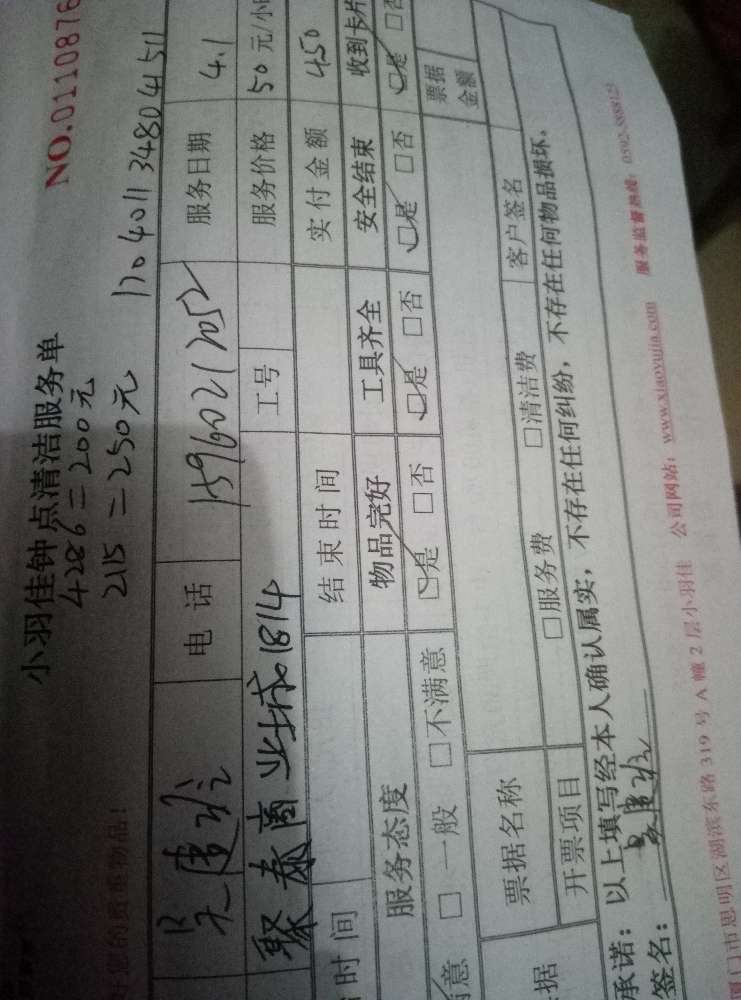 NO.0110876
小羽佳钟点清洁服务单
4286=200元
2115=250元
服务日期 4.1
电话 15960212052
服务价格 50元/小
聚泰商业城1814
工号
实付金额 450
时间
结束时间
服务态度
物品完好 工具齐全 安全结束 收到卡片
意 □一般 □不满意
□是 □否 □是 □否 □是 □否 □是 □否
票据名称
票据金额
据
开票项目 □服务费 □清洁费
客户签名
承诺：以上填写经本人确认属实，不存在任何纠纷，不存在任何物品损坏。
签名：
门市思明区湖滨东路 319 号 A 幢 2 层小羽佳 公司网站：www.xiaoyujia.com 服务监督热线：